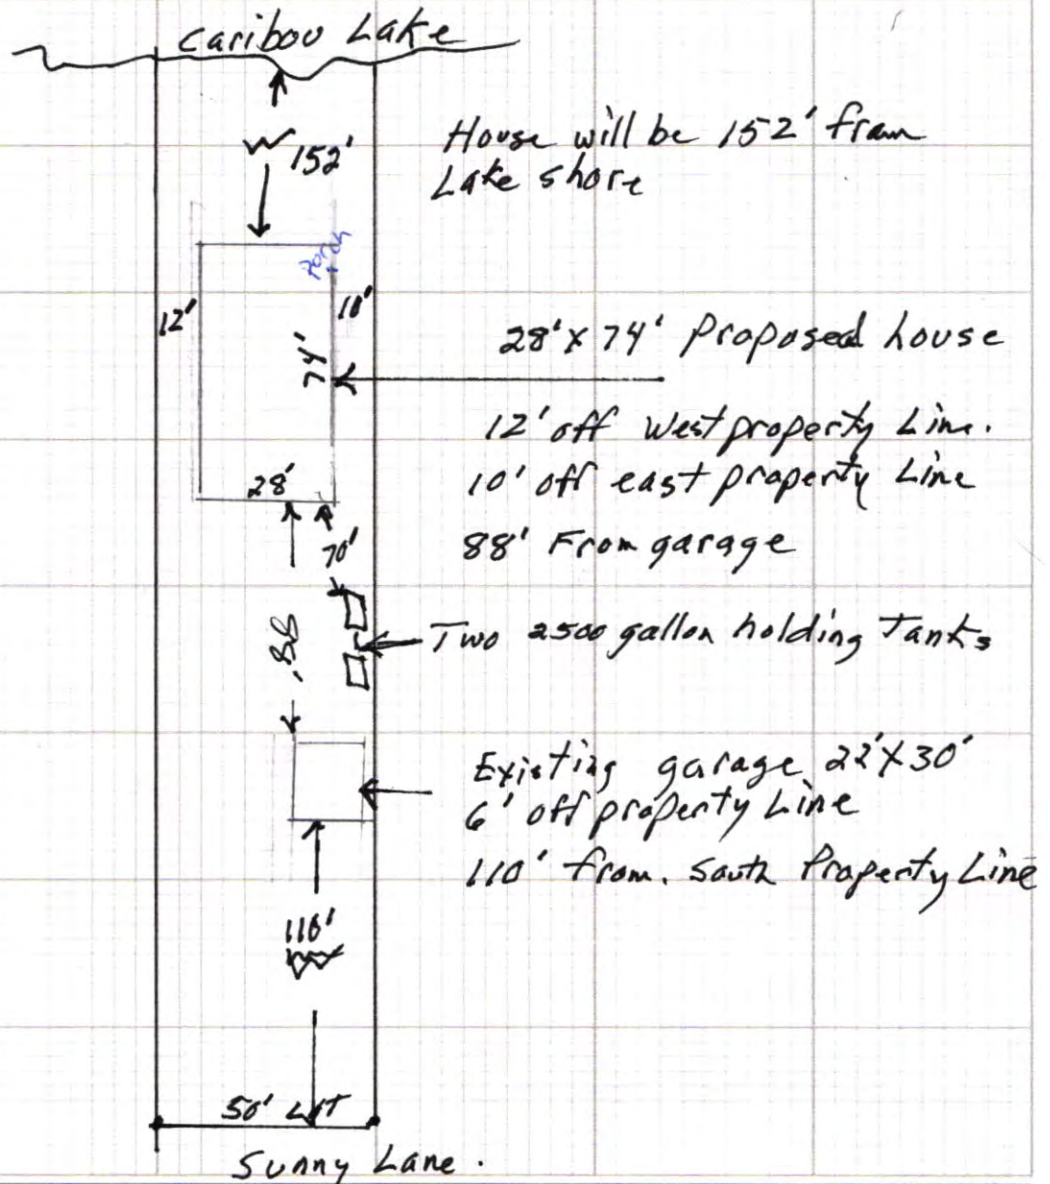 Caribou Lake
152'
House will be 152' from
Lake shore
Porch
12'
10'
74'
28' X 74' Proposed house
12' off West property Line.
28'
10' off east property Line
88' From garage
70'
88'
Two 2500 gallon holding Tanks
Existing garage 22' X 30'
6' off property Line
110' from. South Property Line
110'
50' LOT
Sunny Lane.